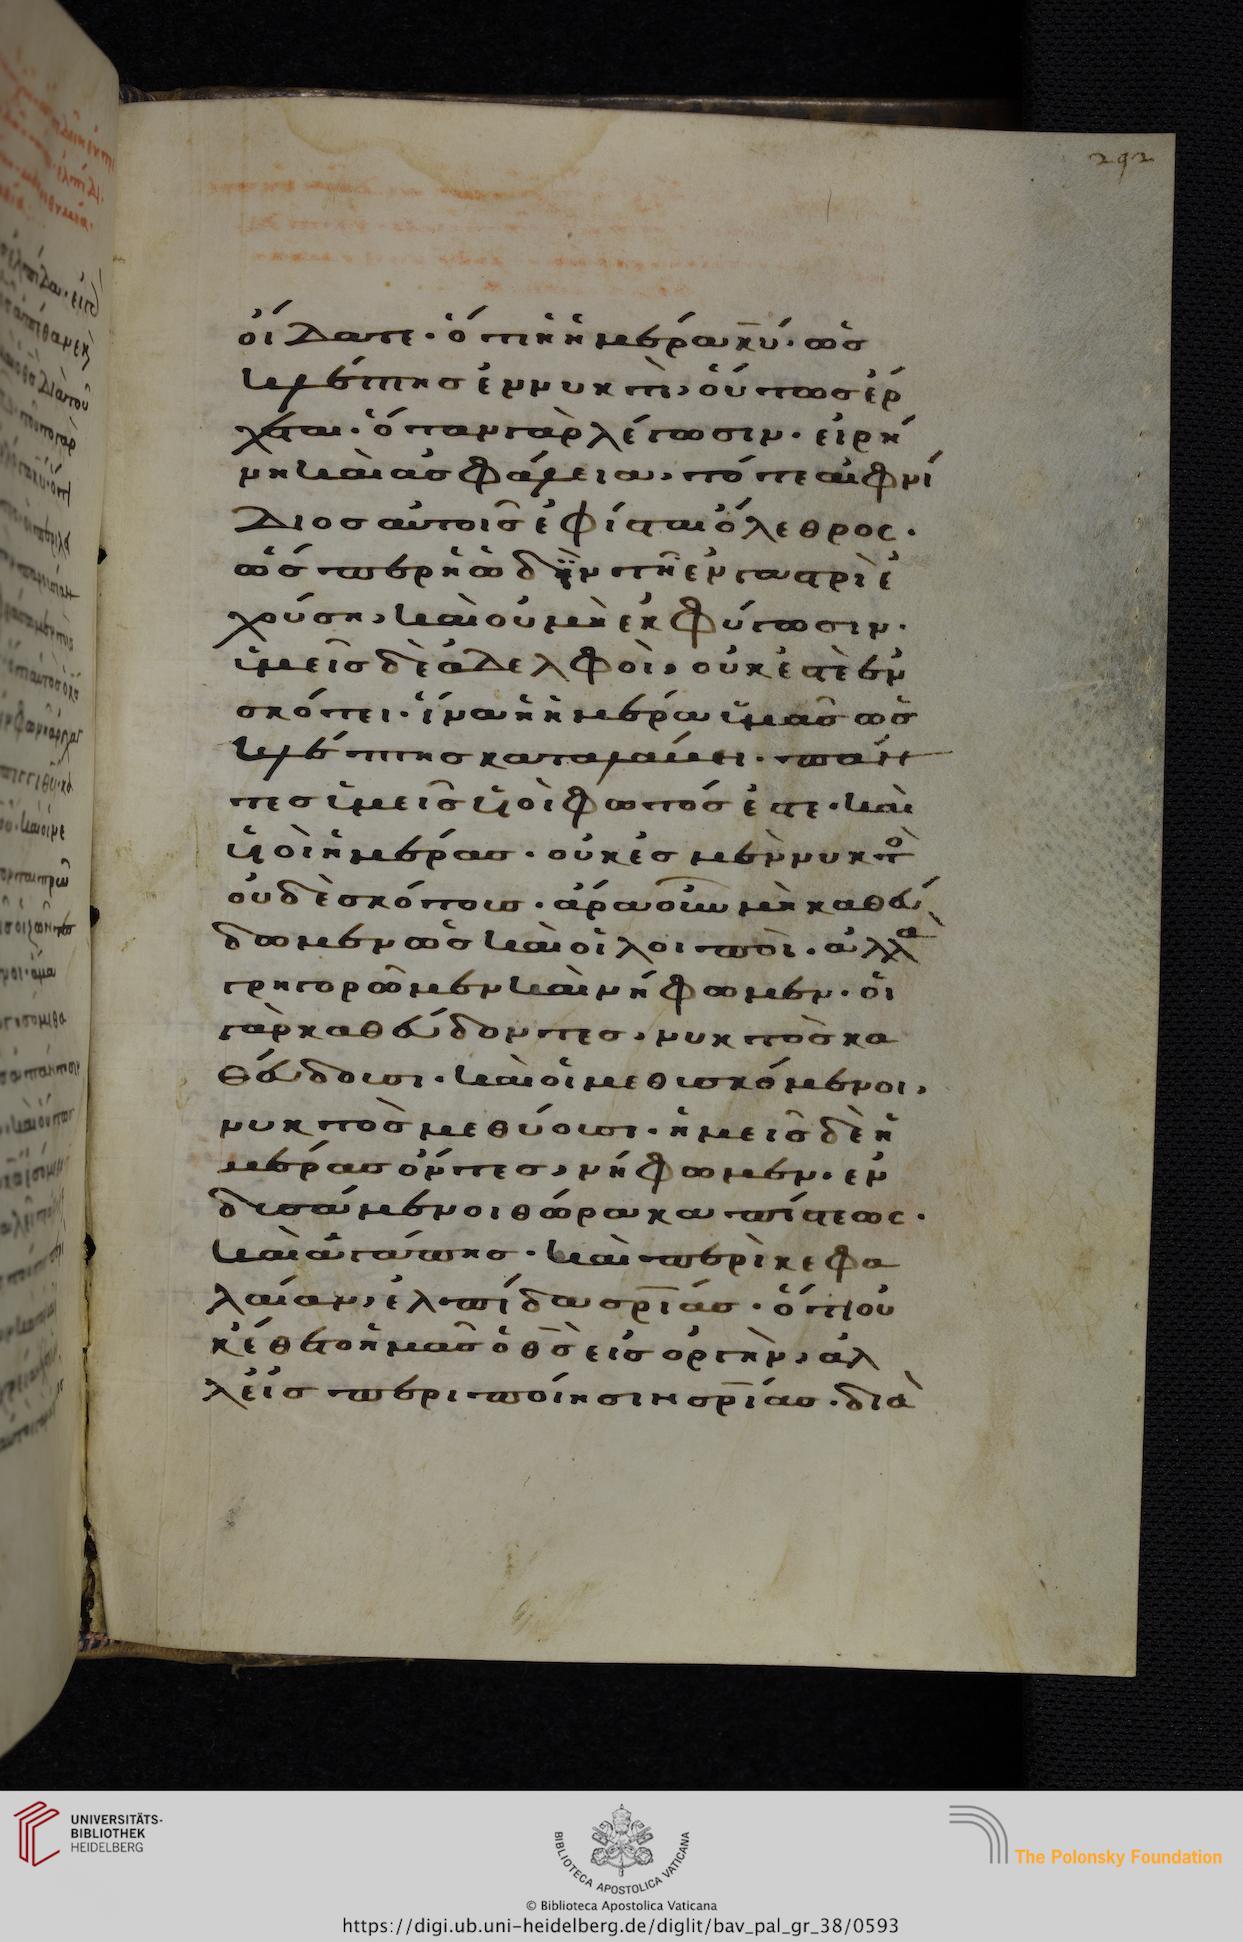 292
οἴδατε· ὅτι ἡ ἡμέρα κ̅υ̅· ὡς
κλέπτης ἐν νυκτὶ, οὕτως ἔρ
χεται· ὅταν γὰρ λέγωσιν· εἰρή
νη καὶ ἀσφάλεια, τότε αἰφνί
διος αὐτοῖς ἐφίσταται ὄλεθρος·
ὥσπερ ἡ ὠδὴν τῇ ἐν γαστρὶ ἐ
χούση, καὶ οὐ μὴ ἐκφύγωσιν·
ὑμεῖς δὲ ἀδελφοὶ, οὐκ ἐστὲ ἐν
σκότει· ἵνα ἡ ἡμέρα ὑμᾶς ὡς
κλέπτης καταλάβει· πάν
τες ὑμεῖς υἱοὶ φωτός ἐστε· καὶ
υἱοὶ ἡμέρας· οὐκ ἐσμὲν νυκτὸ
οὐδὲ σκότους· ἄρα οὖν μὴ καθεύ
δωμεν ὡς καὶ οἱ λοιποὶ· ἀλλὰ
γρηγορῶμεν καὶ νήφωμεν· οἱ
γὰρ καθεύδοντες, νυκτὸς κα
θεύδουσι· καὶ οἱ μεθυσκόμενοι,
νυκτὸς μεθύουσι· ἡμεῖς δὲ ἡ
μέρας ὄντες, νήφωμεν· ἐν
δυσάμενοι θώρακα πίστεως·
καὶ ἀγάπης· καὶ περὶ κεφα
λαίαν, ἐλπίδα σ̅ρ̅ίας· ὅτι οὐ
κ ἔθετο ἡμᾶς ὁ θ̅ς̅ εἰς ὀργὴν, ἀλ
λ εἰς περιποίησιν σ̅ρ̅ίας· διὰ
UNIVERSITÄTS-
BIBLIOTHEK
HEIDELBERG
BIBLIOTECA APOSTOLICA VATICANA
The Polonsky Foundation
© Biblioteca Apostolica Vaticana
https://digi.ub.uni-heidelberg.de/diglit/bav_pal_gr_38/0593